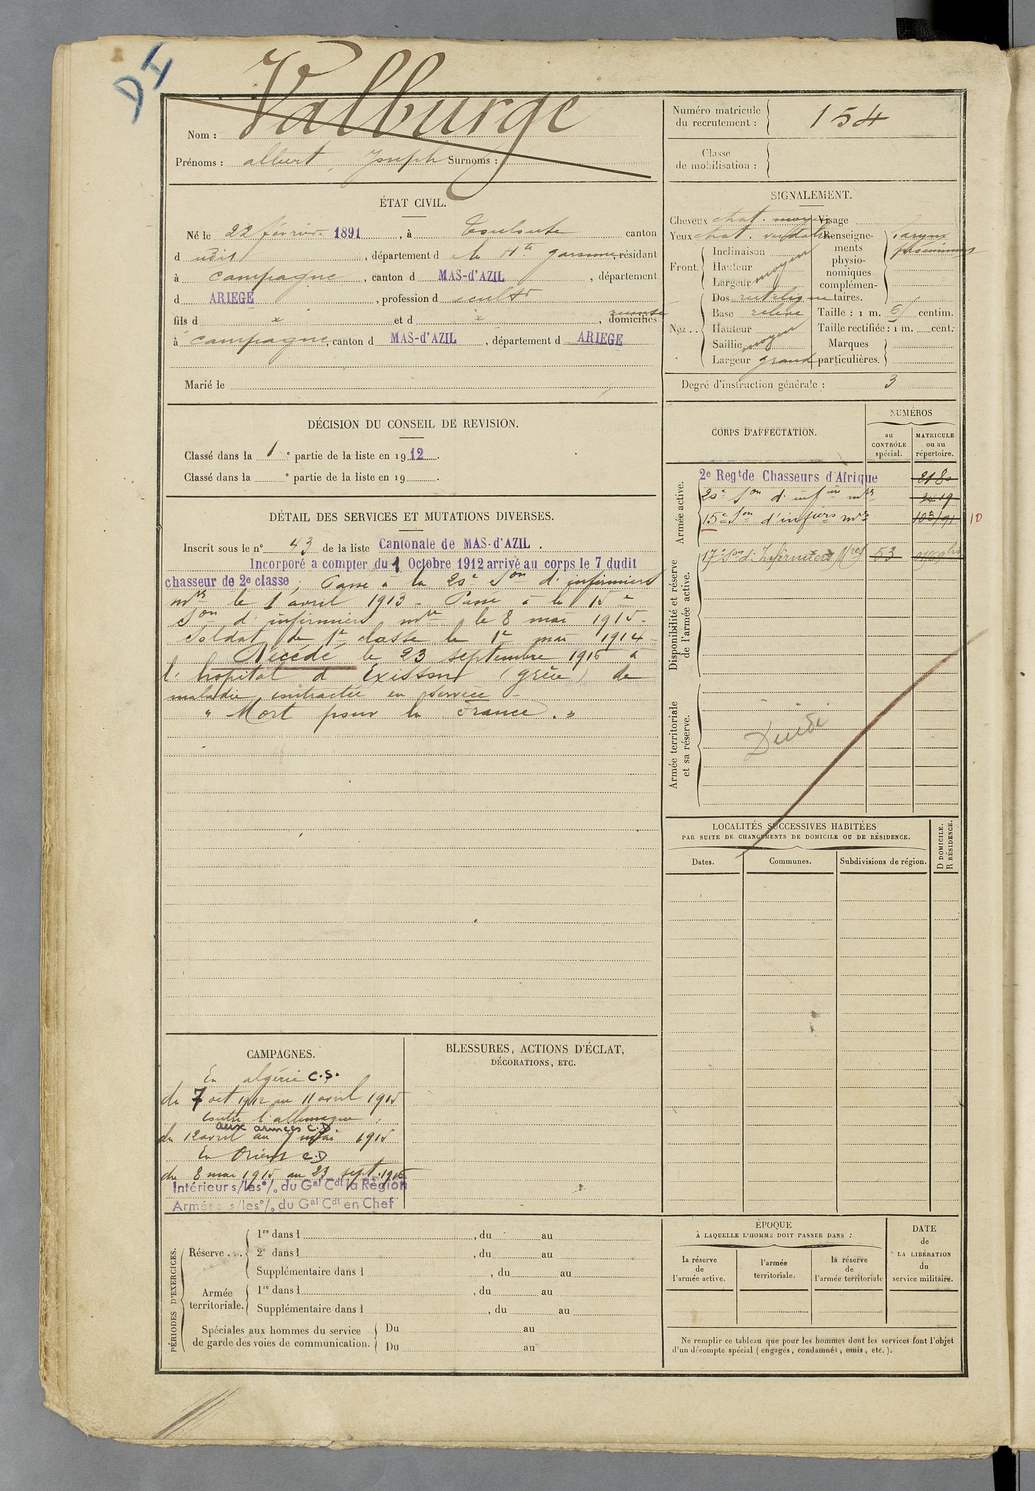 D
Nom : Valburge
Prénoms : albert Joseph Surnoms :
Numéro matricule
du recrutement : 154
Classe
de mobilisation :
ÉTAT CIVIL.
Né le 22 février 1891, à Toulouse canton
d udit, département d e la Hte garonne résidant
à Campagne, canton d MAS-d'AZIL, département
d ARIEGE, profession d
fils d x et d x, domiciliés
à Campagne canton d MAS-d'AZIL, département d ARIEGE
Marié le
SIGNALEMENT.
Cheveux chat. moyen Visage
Yeux chat. Renseigne-
ments
physio-
nomiques
complémen-
taires.
Front. Inclinaison
Hauteur moyen
Largeur
Nez . . Dos rectiligne
Base relevé
Hauteur
Saillie moyen
Largeur grand
Taille : 1 m. centim.
Taille rectifiée : 1 m. cent.
Marques
particulières.
Degré d'instruction générale : 3
DÉCISION DU CONSEIL DE REVISION.
Classé dans la 1e partie de la liste en 1912.
Classé dans la e partie de la liste en 19 .
DÉTAIL DES SERVICES ET MUTATIONS DIVERSES.
Inscrit sous le n° 43 de la liste Cantonale de MAS-d'AZIL.
Incorporé à compter du 1 Octobre 1912 arrivé au corps le 7 dudit
chasseur de 2e classe, Passé à la 20e Son d'infirmiers
mres le 1 avril 1913 - Passé à la 15e
Son d'infirmiers mre le 8 mai 1915 -
Soldat de 1e classe le 1er mai 1914 -
Décédé le 23 septembre 1915 à
l'hôpital d' (grèce) de
maladie contractée en service -
" Mort pour la France. "
CORPS D'AFFECTATION.
NUMÉROS
au
CONTRÔLE
spécial.
MATRICULE
ou au
répertoire.
Armée active.
2e Regt de Chasseurs d'Afrique
20e Son d'infirmiers mres
15e Son d'infirmiers mres
10
Disponibilité et réserve
de l'armée active.
17e Son d'Infirmiers 53
Armée territoriale
et sa réserve.
LOCALITÉS SUCCESSIVES HABITÉES
PAR SUITE DE CHANGEMENTS DE DOMICILE OU DE RÉSIDENCE.
Dates. Communes. Subdivisions de région.
D DOMICILE.
R RÉSIDENCE.
CAMPAGNES.
En algérie C.S.
du 7 oct 1912 au 11 avril 1915
contre l'allemagne
aux armées C.D
du 12 avril au 7 mai 1915
En Orient C.D
du 8 mai 1915 au 23 sept. 1915
Intérieur s/les o/. du Gal Cdt la Région
Armées s/les o/. du Gal Cdt en Chef
BLESSURES, ACTIONS D'ÉCLAT,
DÉCORATIONS, ETC.
PÉRIODES D'EXERCICES.
Réserve . . .
1re dans l , du au
2e dans l , du au
Supplémentaire dans l , du au
Armée
territoriale.
1re dans l , du au
Supplémentaire dans l , du au
Spéciales aux hommes du service
de garde des voies de communication.
Du au
Du au
ÉPOQUE
À LAQUELLE L'HOMME DOIT PASSER DANS :
la réserve
de
l'armée active.
l'armée
territoriale.
la réserve
de
l'armée territoriale
DATE
de
LA LIBÉRATION
du
service militaire.
Ne remplir ce tableau que pour les hommes dont les services font l'objet
d'un décompte spécial (engagés, condamnés, omis, etc.).